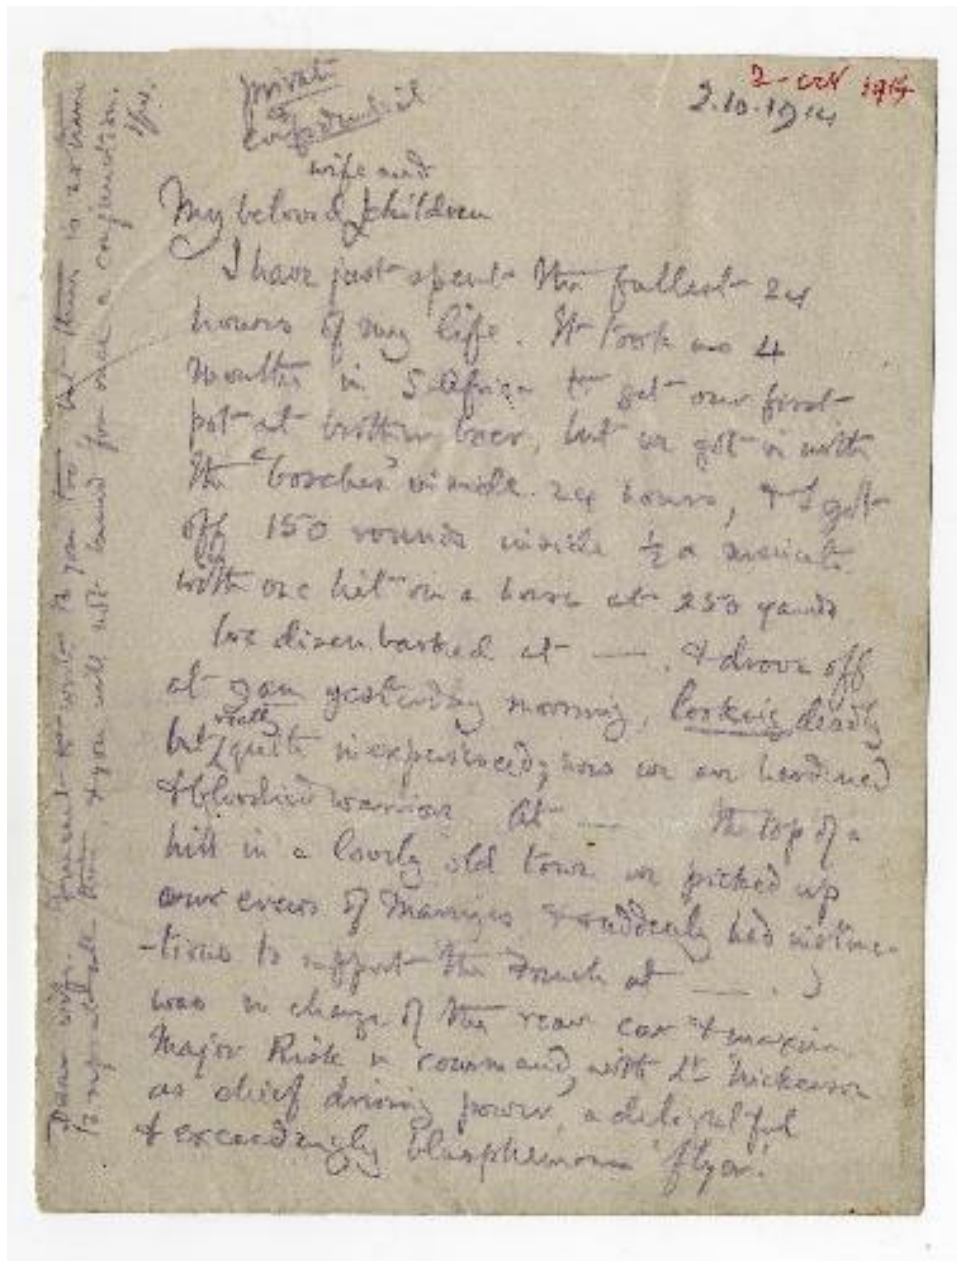 2-oct 1914
2.10.1914
private
&
confidential
wife and
My beloved children
I have just spent the fullest 24
hours of my life. It took us 4
months in S Africa to get our first
pot at brother boer, but we got in with
the "bosches" inside 24 hours, & I got
off 150 rounds inside ½ a minute
with one hit on a horse at 250 yards
We disembarked at — . & drove off
at 9am yesterday morning, looking deadly
really
but quite inexperienced, now we are hardened
& blooded warriors At — the top of a
hill in a lovely old town we picked up
our crews of Marines & suddenly had instruc-
-tions to support the French at — . I
was in charge of the rear car & maxim
Major Risk in command, with Lt Nickerson
as chief driving power, a delightful
& exceedingly blasphemous 'flyer'.
Dear wife. I meant to write to you too but there is no time
to & you will not mind for once a conjunction.